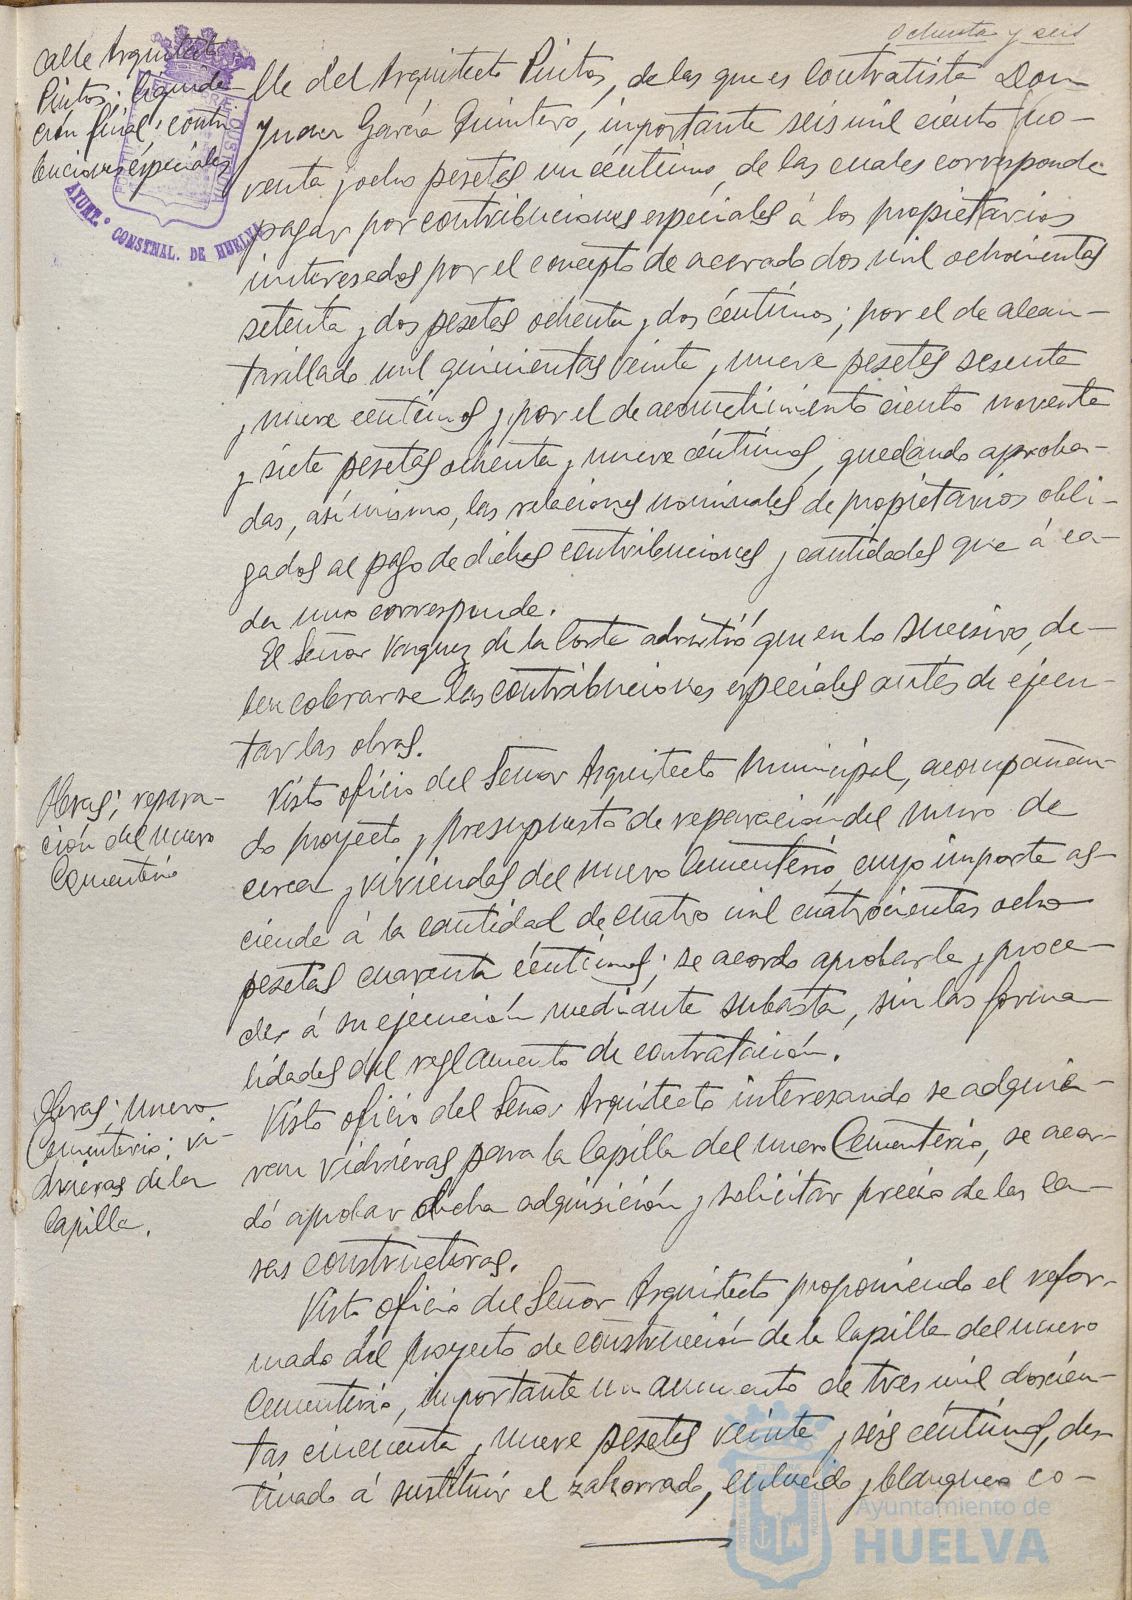 Ochenta y seis
calle Arquitecto
Pintos; liquida-
ción final; contri
buciones especiales
AYUNT.º CONSTNAL. DE HUELVA
lle del Arquitecto Pintos, de las que es contratista Don
Juan García Quintero, importante seis mil ciento no-
venta y ocho pesetas un céntimo, de las cuales corresponde
pagar por contribuciones especiales á los propietarios
interesados por el concepto de acerado dos mil ochocientas
setenta y dos pesetas ochenta y dos céntimos; por el de alcan-
tarillado mil quinientas veinte y nueve pesetas sesenta
y nueve centimos y por el de acometimiento ciento noventa
y siete pesetas ochenta y nueve céntimos, quedando aproba-
das, asímismo, las relaciones nominales de propietarios obli-
gados al pago de dichas contribuciones y cantidades que á ca-
da uno corresponde.
El Señor Vazquez de la Corte advirtió que en lo sucesivo, de-
ben cobrarse las contribuciones especiales antes de ejecu-
tar las obras.
Obras; repara-
ción del nuevo
Cementerio
Visto oficio del Señor Arquitecto Municipal, acompañan-
do proyecto y presupuesto de reparación del muro de
cerca y viviendas del nuevo Cementerio, cuyo importe as-
ciende á la cantidad de cuatro mil cuatrocientas ocho
pesetas cuarenta céntimos; se acordo aprobarle y proce-
der á su ejecución mediante subasta, sin las forma-
lidades del reglamento de contratación.
Obras; nuevo
Cementerio; vi-
drieras de la
Capilla.
Visto oficio del Señor Arquitecto interesando se adquie-
ran vidrieras para la Capilla del nuevo Cementerio, se acor-
dó aprobar dicha adquisición y solicitar precio de las ca-
sas constructoras.
Visto oficio del Señor Arquitecto proponiendo el refor-
mado del proyecto de construcción de la Capilla del nuevo
Cementerio, importante un aumento de tres mil doscien-
tas cincuenta y nueve pesetas veinte y seis céntimos, des-
tinado á sustituir el zahorrado, enlucido y blanqueo co-
Ayuntamiento de
HUELVA